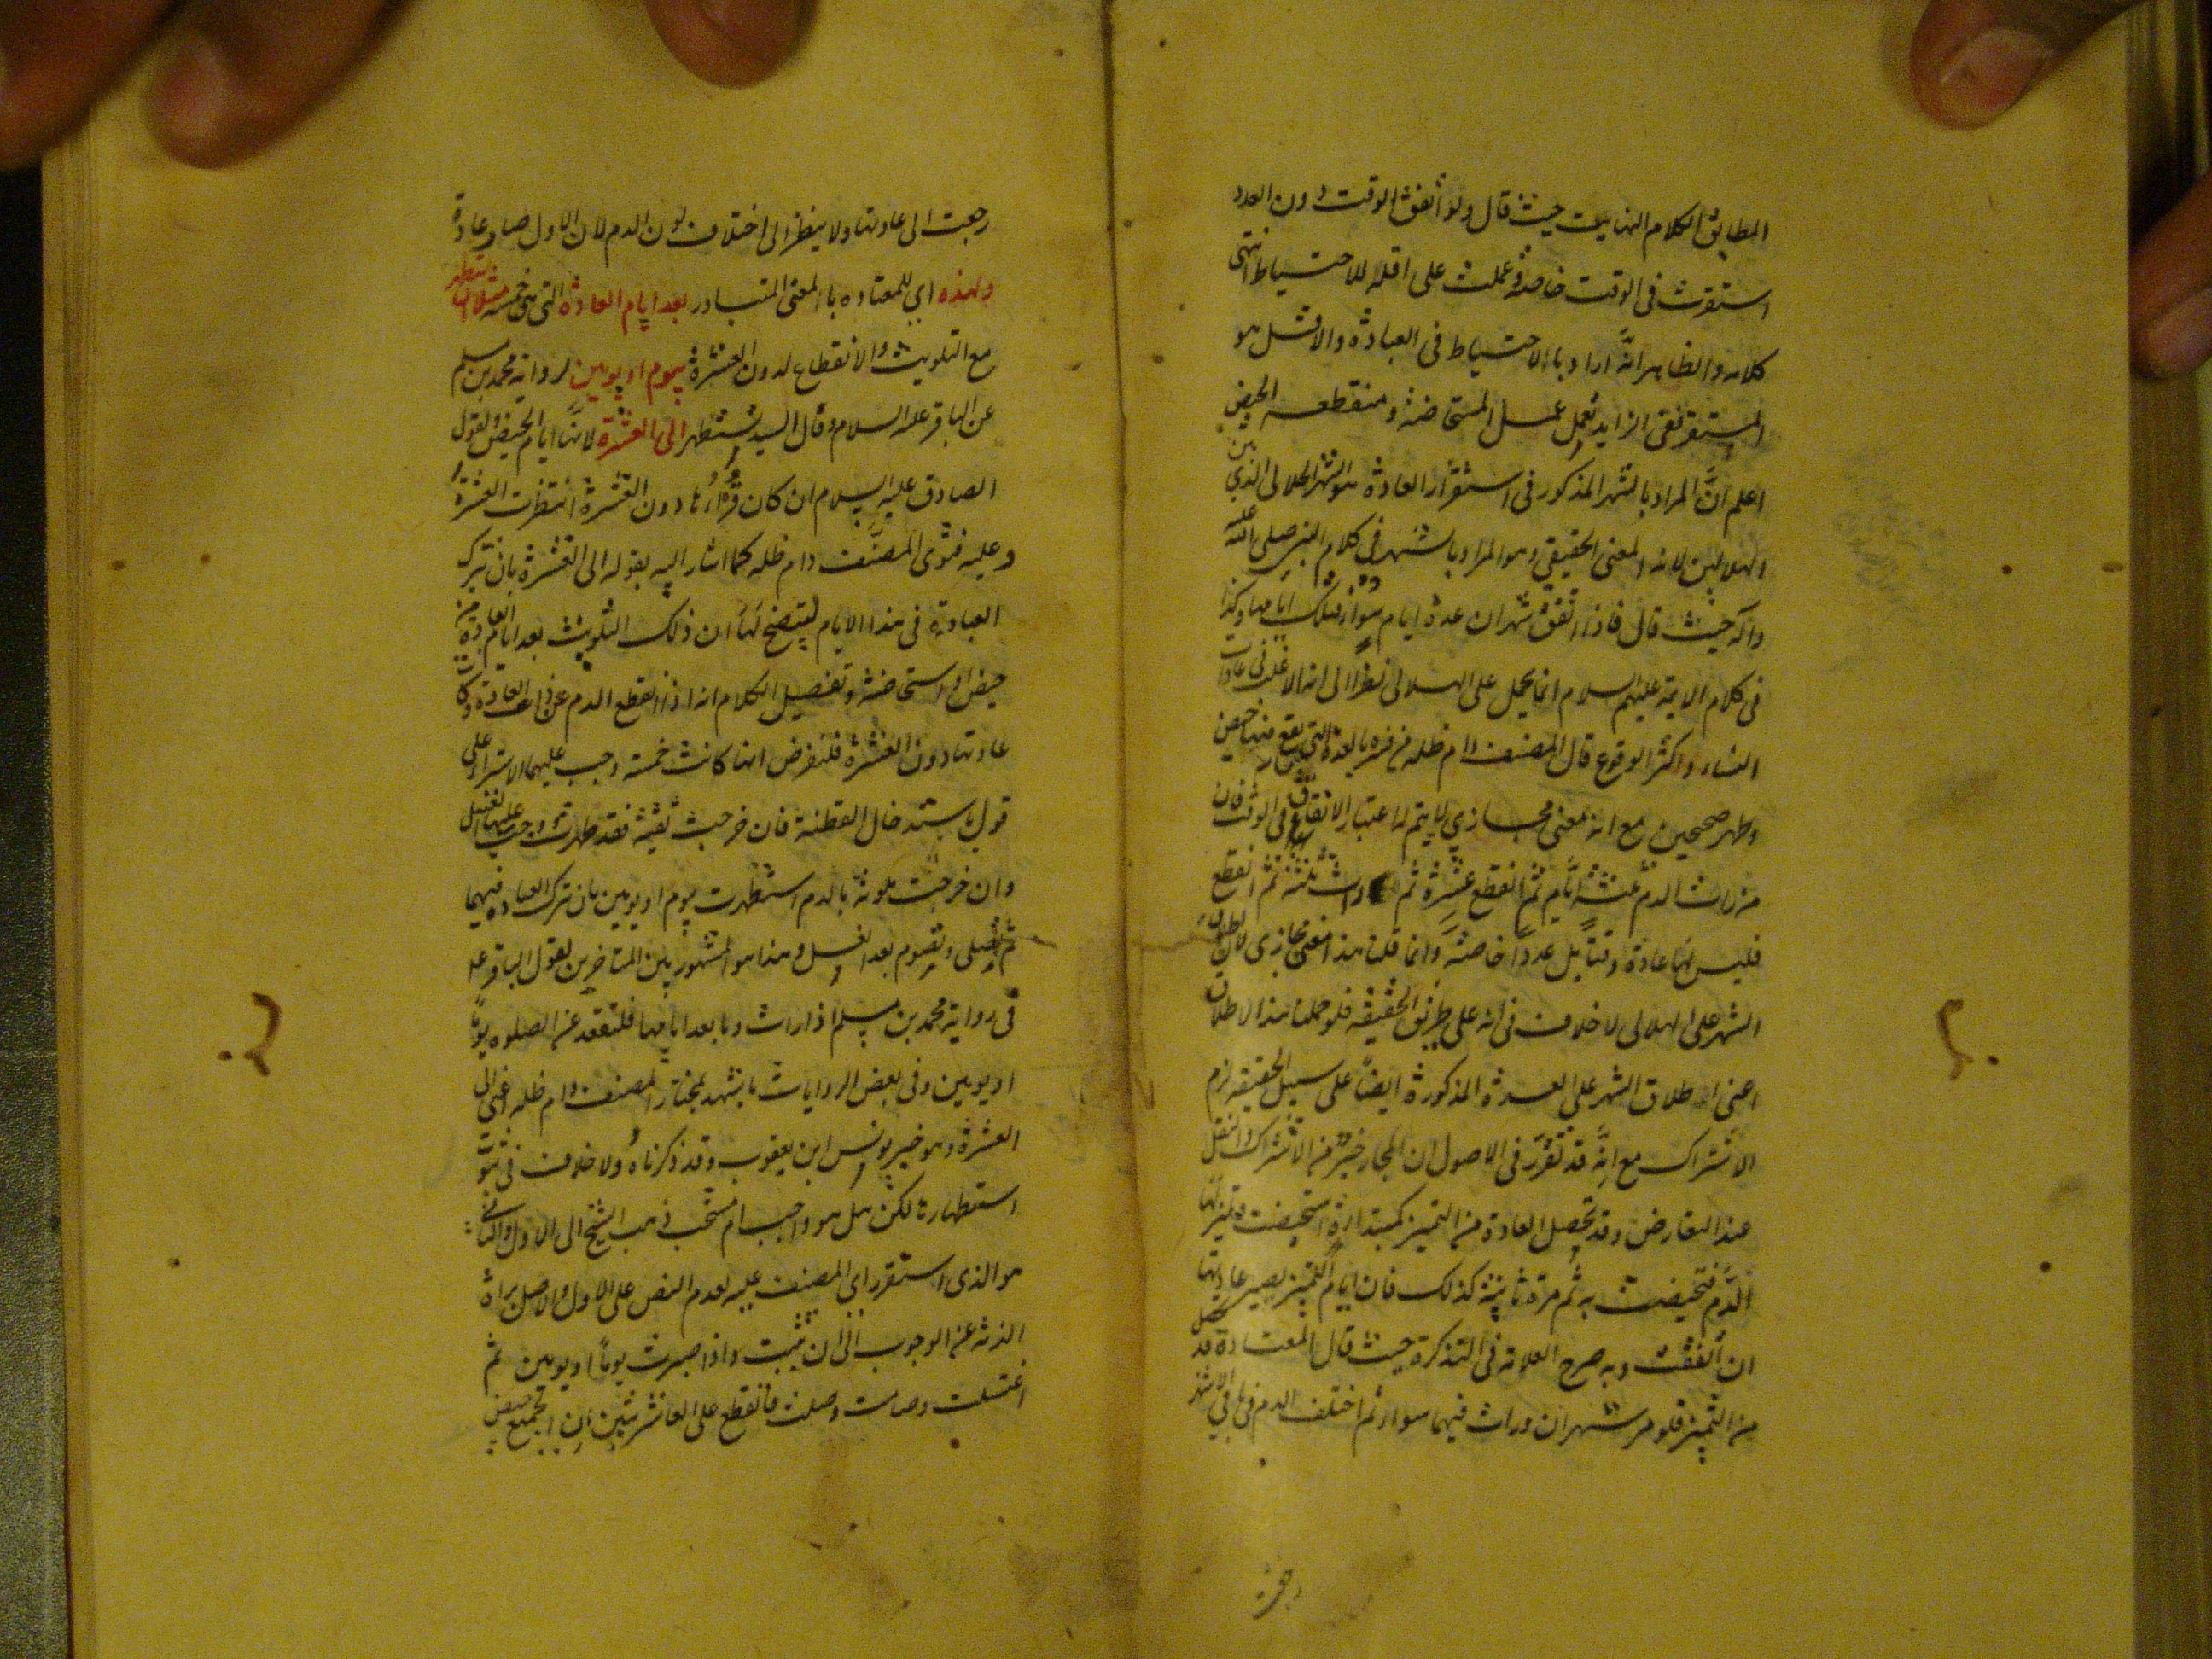 المطابق لكلام النهاية حيث قال ولو اتفق الوقت دون العدد
استقرت فى الوقت خاصة وعملت على اقله للاحتياط انتهى
كلامه والظاهر انه اراد بالاحتياط فى العبادة والاقل هو
المستقر ففى الزايد تعمل عمل المستحاضة و منقطعه الحيض
اعلم ان المراد بالشهر المذكور فى استقرار العادة هو الشهر الهلالى الذي بين
الهلالين لانه المعنى الحقيقي وهو المراد بالشهر في كلام النبي صلى الله عليه
وآله حيث قال فاذا اتفق شهران عدة ايام سواء فتلك ايامها وكذا
فى كلام الايمة عليهم السلام انما يحمل على الهلالى نظرا الى انه الاغلب فى عادات
النساء واكثر الوقوع قال المصنف دام ظله من فسره بالعدة التى يقع فيها حيض
وطهر صحيحين مع انه معنى مجازي لا يتم له اعتبار الاتفاق فى الوقت فان
من رات الدم عشرة ايام ثم انقطع عشرة ثم رات ثلثة ثم انقطع
فليس لها عادة وقتا بل عددا خاصة وانما قلنا هذا معنى مجازى لان اطلاق
الشهر على الهلالى لا خلاف فى انه على طريق الحقيقه فلو حملنا هذا الاطلاق
اعنى اطلاق الشهر على العدة المذكورة ايضا على سبيل الحقيقه لزم
الاشتراك مع انه قد تقرر فى الاصول ان المجاز خير من الاشتراك والنقل
عند التعارض وقد تحصل العادة من التميز كمبتدءة استحيضت وتميز لها
الدم فتحيضت به ثم مرة ثانية كذلك فان ايام التميز يصير عادتها
ان اتفقت وبه صرح العلامه فى التذكرة حيث قال المعتادة قد تحصل
من التميز فلو مر شهران ورات فيهما سواء ثم اختلف الدم فى باقي الاشهر
رجعت
رجعت الى عادتها ولا ينظر الى اختلاف لون الدم لان الاول صار عادة
ولهذه اى للمعتاده بالمعنى المتبادر بعد ايام العادة التى هى خمسه مثلا ان تستظهر
مع التلويث والانقطاع لدون العشرة بيوم او يومين لرواية محمد بن مسلم
عن الباقر عليه السلام وقال السيد تستظهر الى العشرة لانها ايام الحيض ولقول
الصادق عليه السلام ان كان قرؤها دون العشرة انتظرت العشرة
وعليه فتوى المصنف دام ظله كما اشار اليه بقوله الى العشرة بان تترك
العبادة فى هذا الايام ليتضح لها ان ذلك التلويث بعد ايام العادة من
حيض او استحاضة وتفصيل الكلام انه اذا انقطع الدم عن ذات العادة وكانت
عادتها دون العشرة فلنفرض انها كانت خمسة وجب عليها الاستبراء على
قول باستدخال القطنة فان خرجت نقية فقد طهرت ووجب عليها الغسل
وان خرجت ملوثة بالدم استظهرت يوم او يومين بان تترك العبادة فيهما
ثم تصلى وتصوم بعد الغسل وهذا هو المشهور بين المتاخرين لقول الباقر عليه
فى رواية محمد بن مسلم اذا رات دما بعد ايامها فلتقعد عن الصلوه يوما
او يومين وفى بعض الروايات ما يشهد لمختار المصنف دام ظله اعنى الى
العشرة وهو خبر يونس ابن يعقوب وقد ذكرناه ولا خلاف فى ثبوت
استظهارها لكن هل هو واجب ام مستحب ذهب الشيخ الى الاول والثانى
هو الذى استقر راى المصنف عليه لعدم النص على الاول والاصل براءة
الذمة عن الوجوب الى ان يثبت واذا صبرت يوما او يومين ثم
اغتسلت وصامت وصلت فانقطع على العاشر تبين ان الجميع حيض